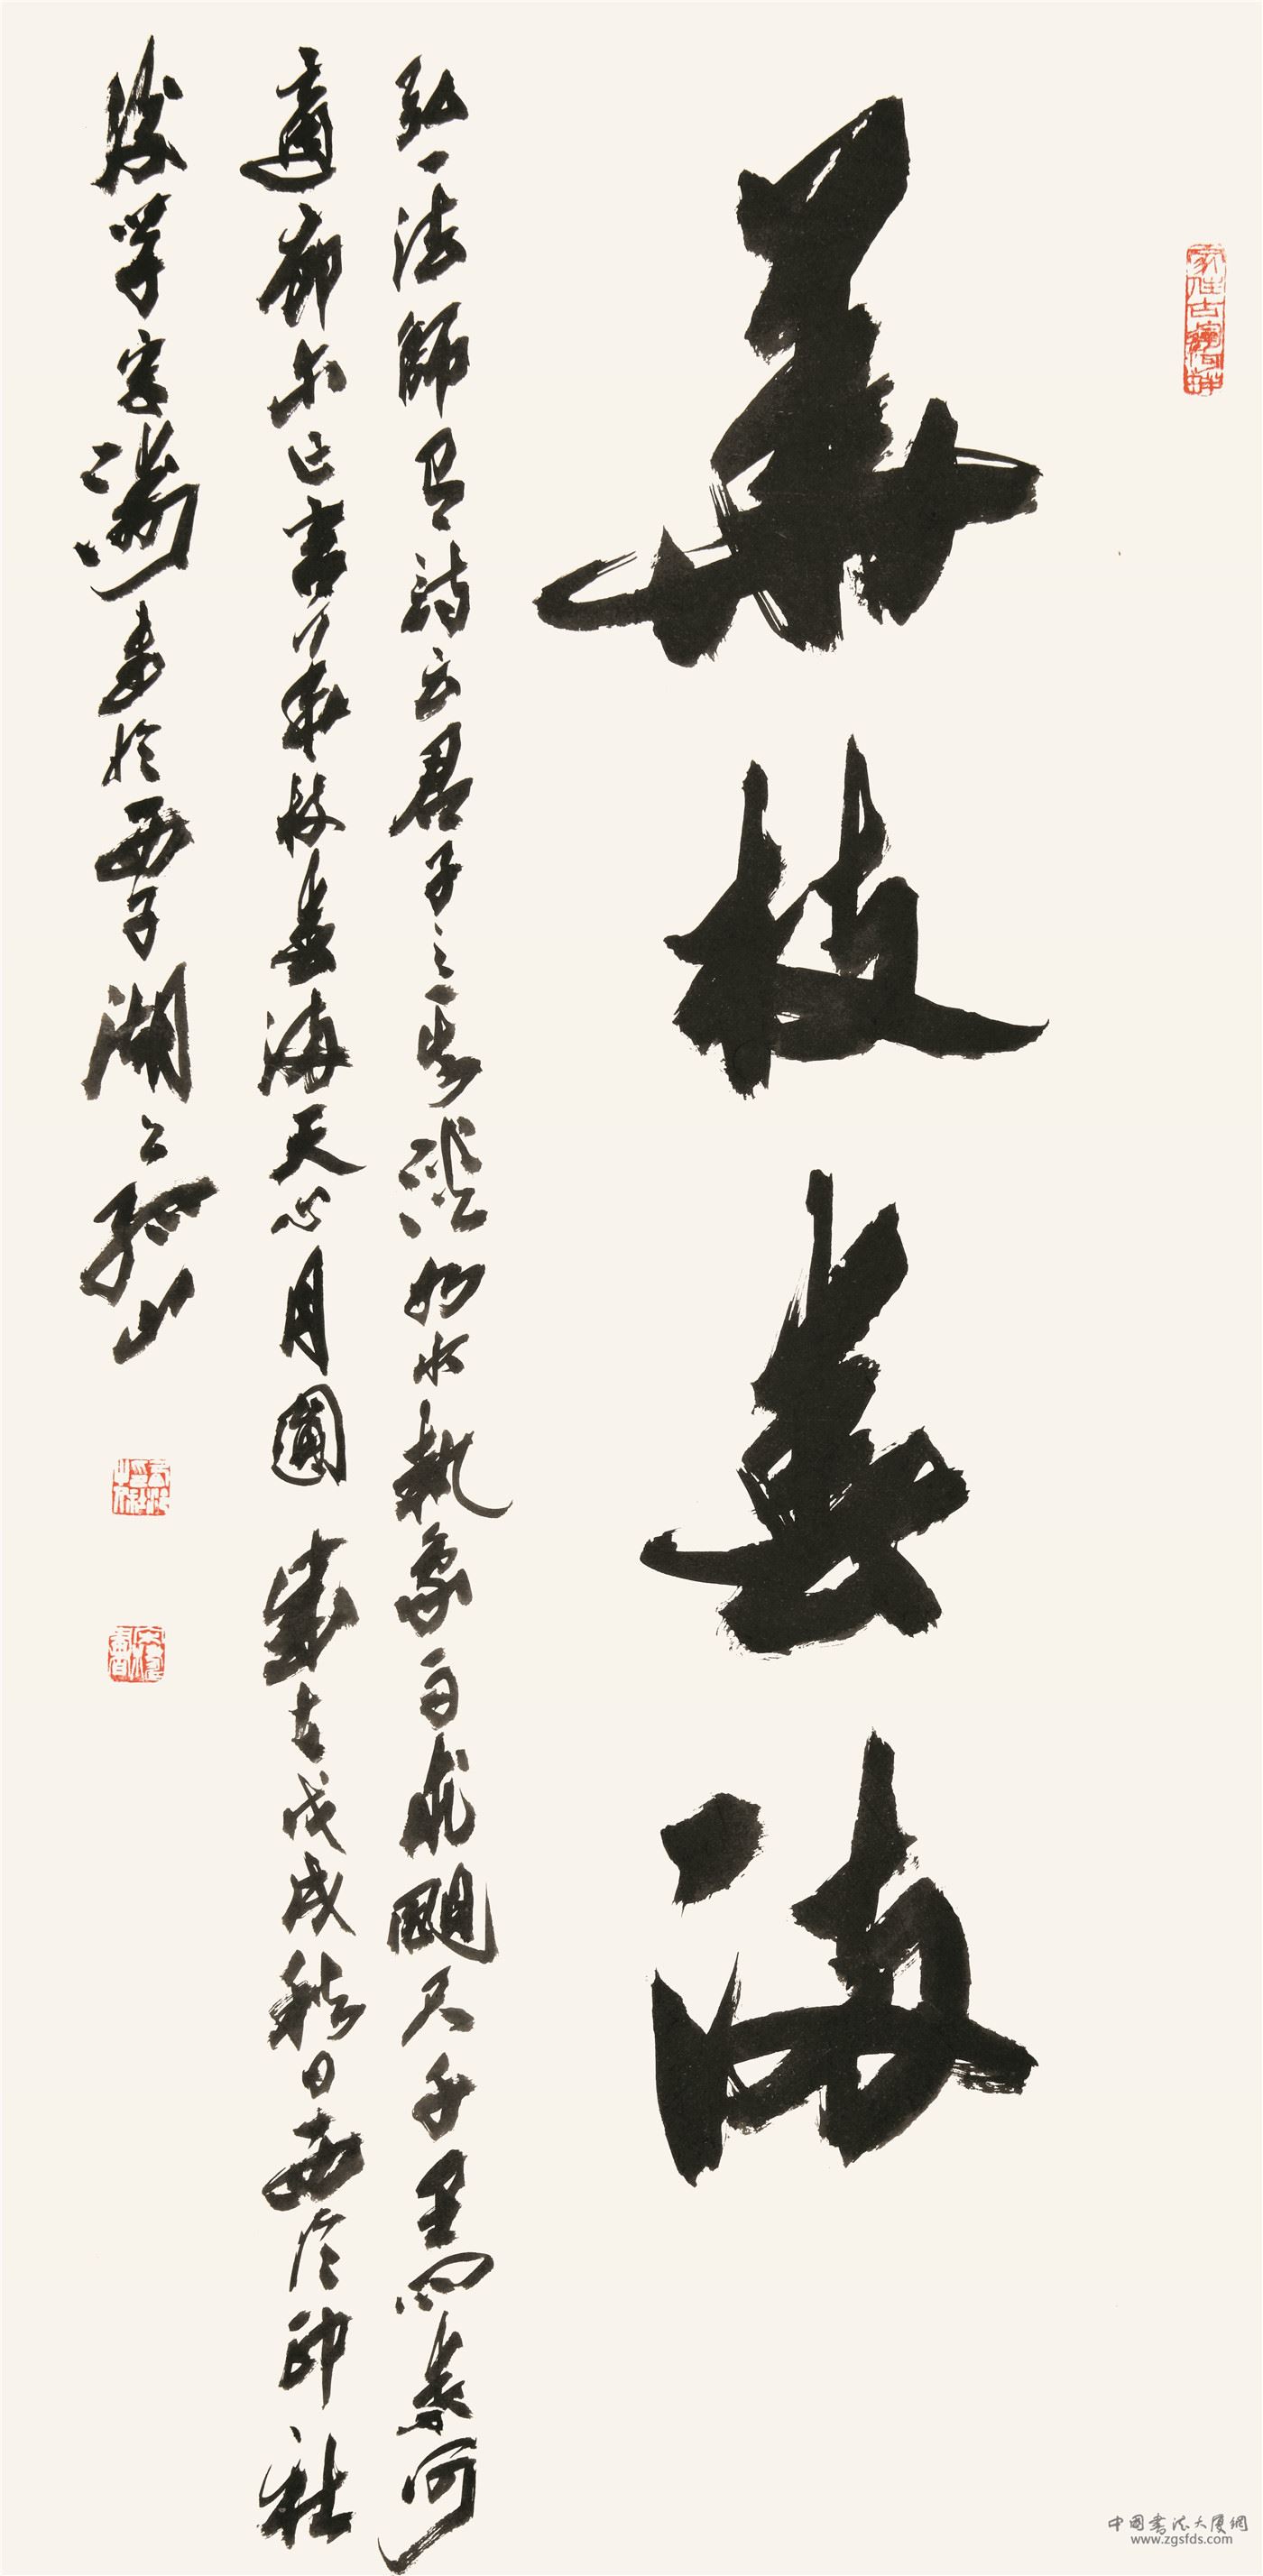 華枝春滿
弘一法師有詩云君子之交淡如水執象而求咫尺千里問余何
適廓尔亡言華枝春滿天心月圓 歲在戊戌秋日西泠印社
後學 書於西子湖之孤山
家住古黃河畔
中国书法大厦網
www.zgsfds.com